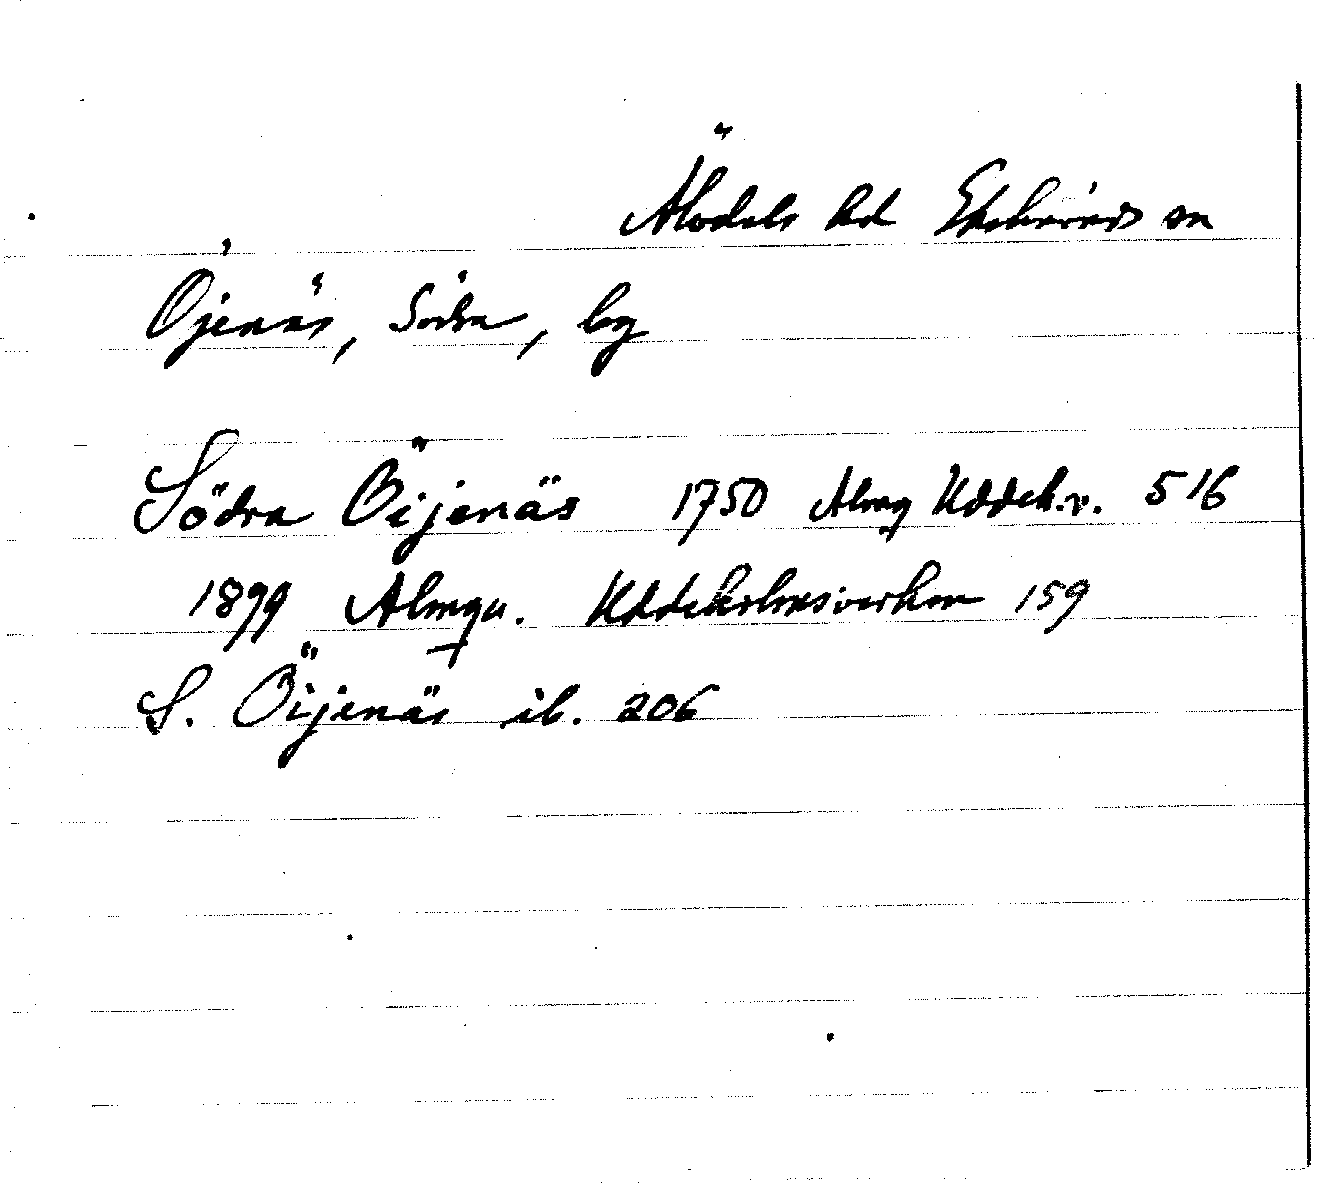 Älvdals hd Ekshärads sn
Öjenäs, Södra, by
Södra Öijenäs 1750 Almq Uddeh.v. 516
1899 Almqu. Uddeholmsverken 159
S. Öijenäs ib. 206